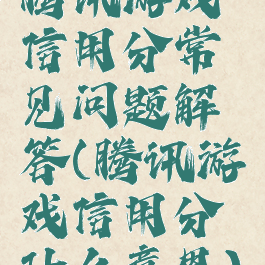 腾讯游戏
信用分常
见问题解
答(腾讯游
戏信用分
什么意思)